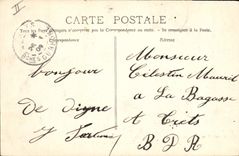 CARTE POSTALE
Tous les pays étrangers n'acceptent pas la Correspondance au recto. - Se renseigner à la Poste.
Correspondance
Adresse
bonjour
de digne
Monsieur
Célestin Maurel
a La Bagasse
à Trets
B D R